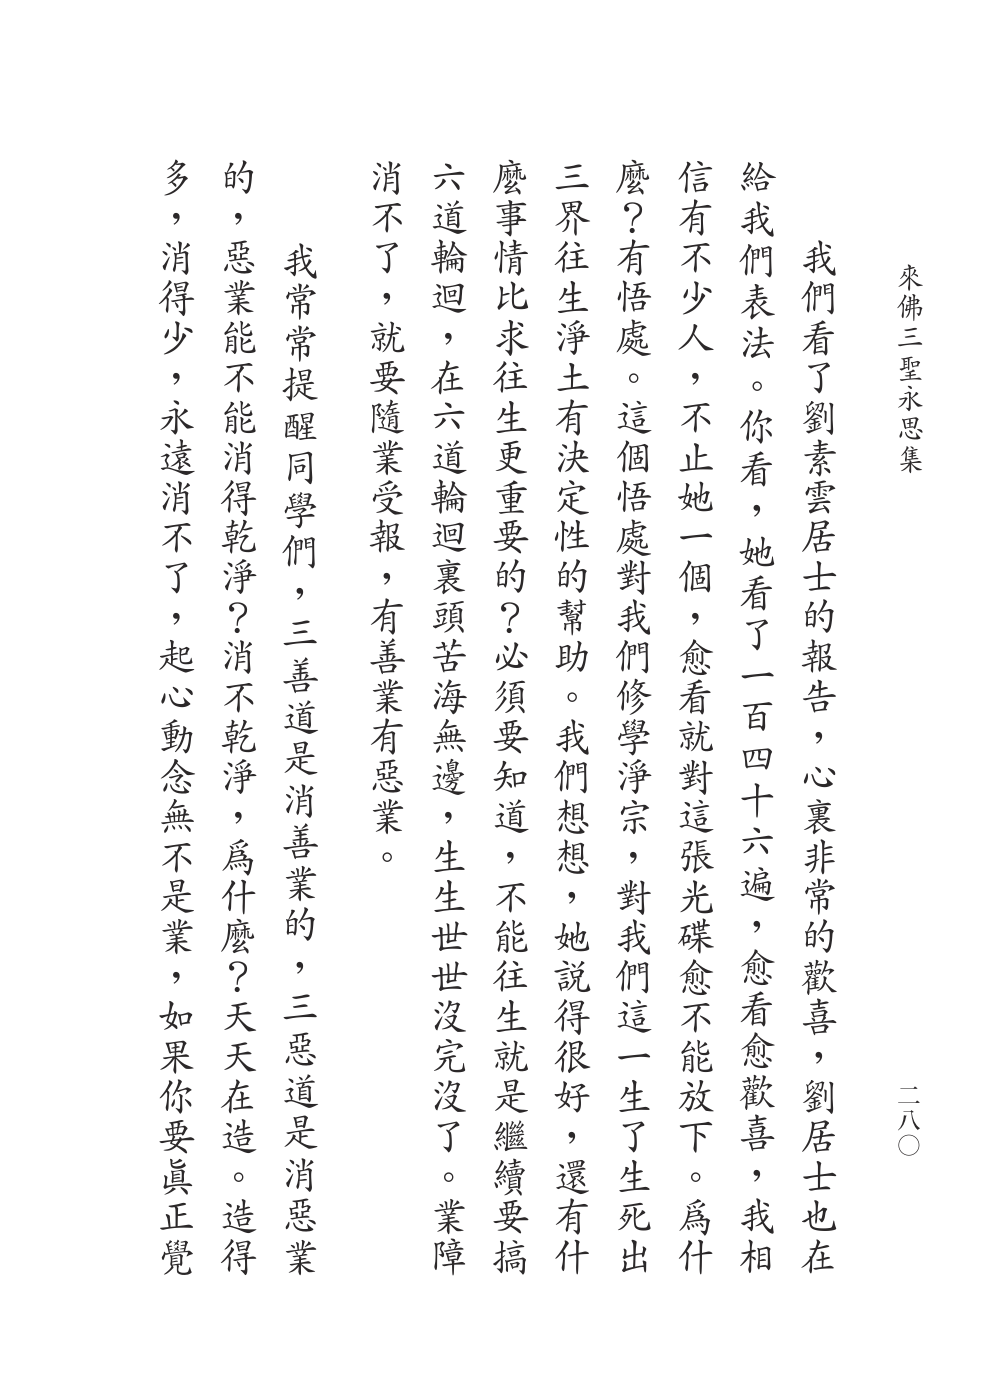 來佛三聖永思集
二八〇
我們看了劉素雲居士的報告，心裏非常的歡喜，劉居士也在
給我們表法。你看，她看了一百四十六遍，愈看愈歡喜，我相
信有不少人，不止她一個，愈看就對這張光碟愈不能放下。爲什
麼？有悟處。這個悟處對我們修學淨宗，對我們這一生了生死出
三界往生淨土有決定性的幫助。我們想想，她說得很好，還有什
麼事情比求往生更重要的？必須要知道，不能往生就是繼續要搞
六道輪迴，在六道輪迴裏頭苦海無邊，生生世世沒完沒了。業障
消不了，就要隨業受報，有善業有惡業。
我常常提醒同學們，三善道是消善業的，三惡道是消惡業
的，惡業能不能消得乾淨？消不乾淨，爲什麼？天天在造。造得
多，消得少，永遠消不了，起心動念無不是業，如果你要眞正覺